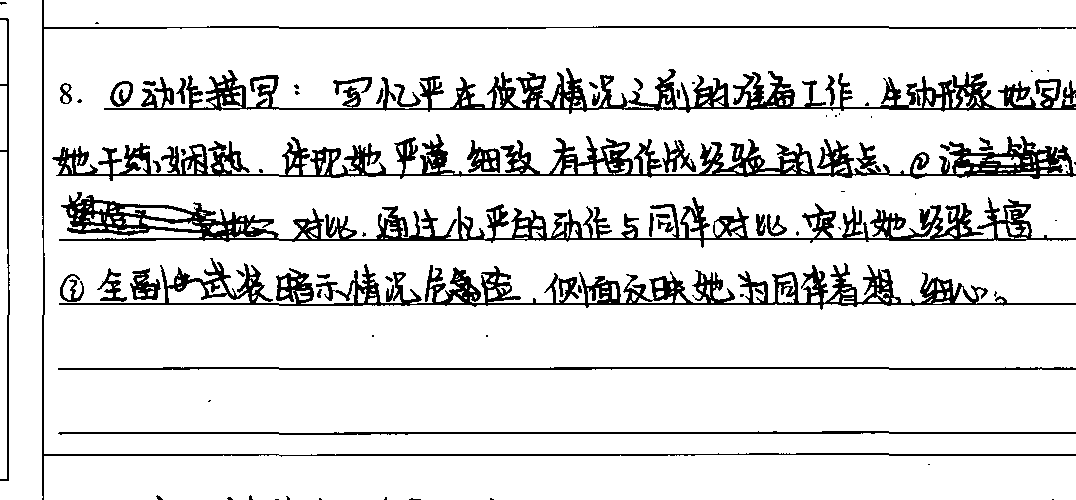 8. ①动作描写：写忆严在侦察情况之前的准备工作，生动形象地写出
她干练娴熟，体现她严谨、细致有丰富作战经验的特点。②
对比，通过忆严的动作与同伴对比，突出她经验丰富，
③全副武装暗示情况危险，侧面反映她为同伴着想，细心。